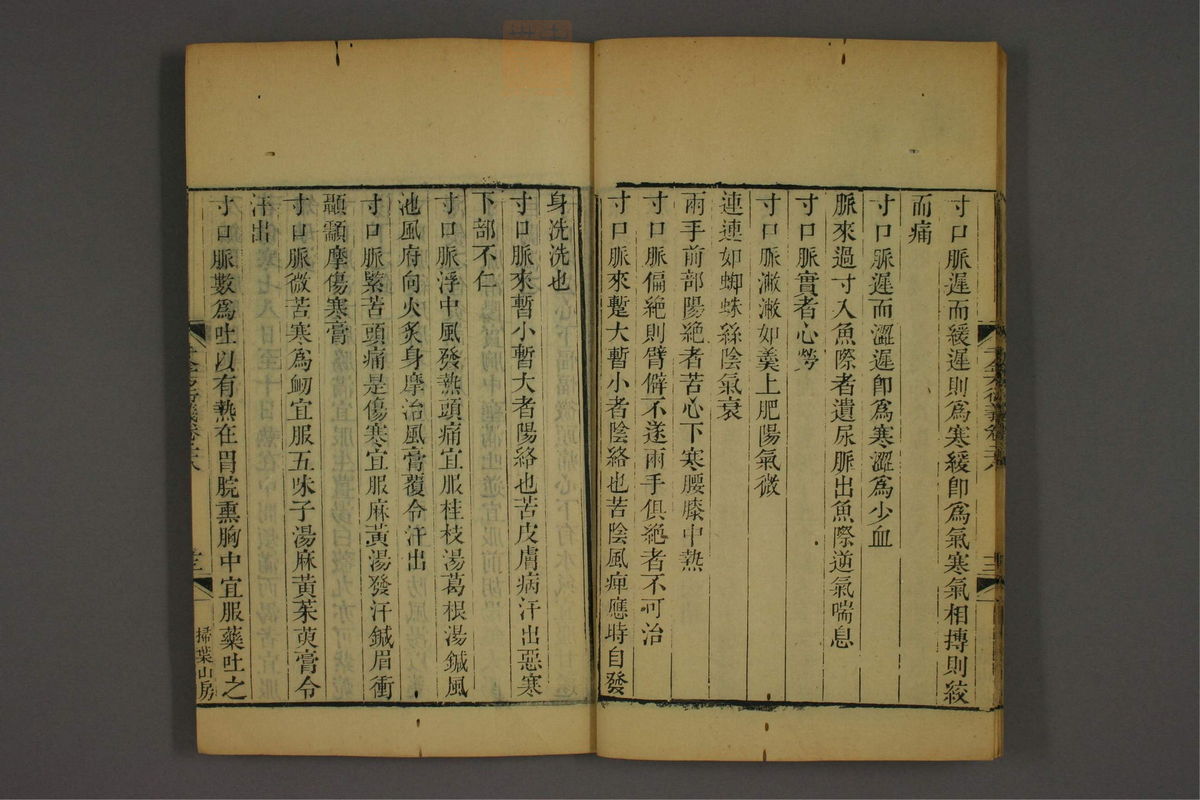 寸口脈遲而緩遲則爲寒緩卽爲氣寒氣相搏則絞
而痛
寸口脈遲而澀遲卽爲寒澀爲少血
脈來過寸入魚際者遺尿脈出魚際逆氣喘息
寸口脈實者心勞
寸口脈潎潎如羹上肥陽氣微
連連如蜘蛛絲陰氣衰
兩手前部陽絕者苦心下寒腰膝中熱
寸口脈偏絕則臂僻不遂兩手俱絕者不可治
寸口脈來蹔大暫小者陰絡也苦陰風痺應時自發
身洗洗也
寸口脈來暫小暫大者陽絡也苦皮膚病汗出惡寒
下部不仁
寸口脈浮中風發熱頭痛宜服桂枝湯葛根湯鍼風
池風府向火炙身摩治風膏覆令汗出
寸口脈緊苦頭痛是傷寒宜服麻黃湯發汗鍼眉衝
顳顬摩傷寒膏
寸口脈微苦寒爲衂宜服五味子湯麻黃茱萸膏令
汗出
寸口脈數爲吐以有熱在胃脘熏胸中宜服藥吐之
掃葉山房